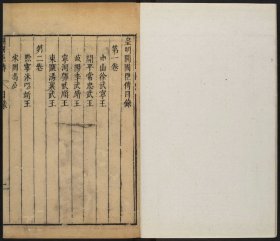 皇明開國臣傳目錄
第一卷
中山徐武寧王
開平常忠武王
岐陽李武靖王
寧河鄧武順王
東甌湯襄武王
第二卷
黔寧沐昭靖王